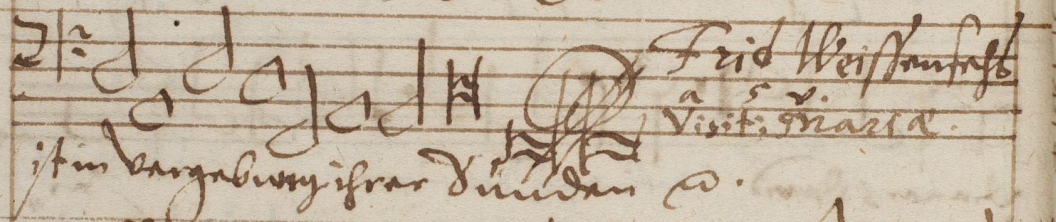 Frid Weissenfechs
a s v.
Visit: Mariæ.
ist in vergebung ihrer Sunden